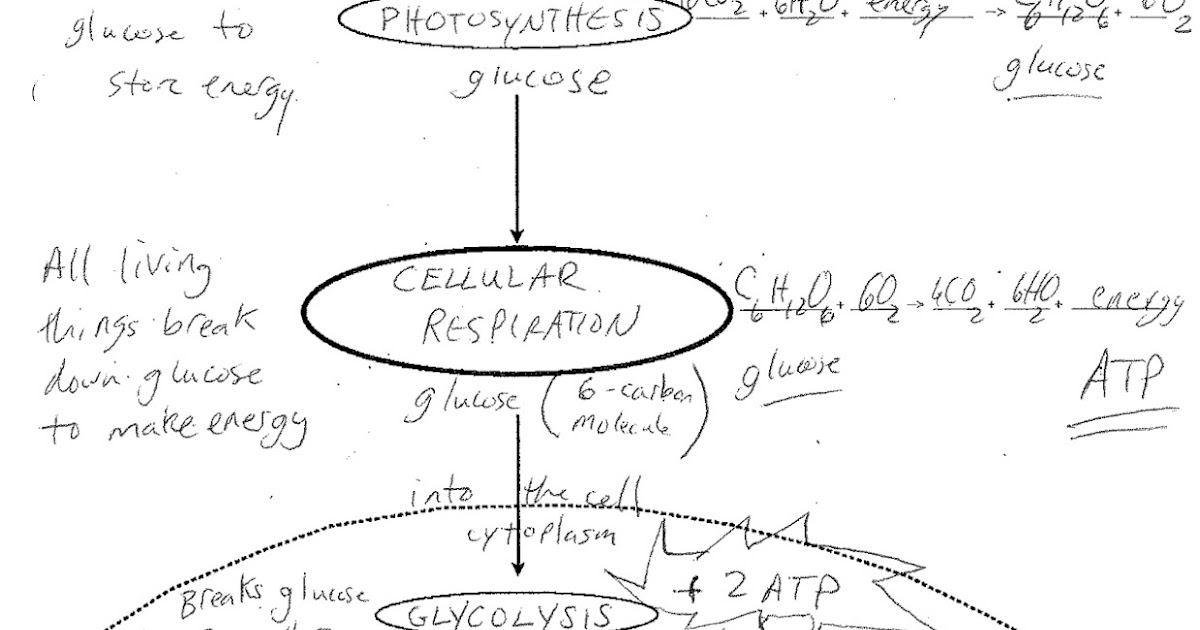 glucose to
store energy.
PHOTOSYNTHESIS
6CO2 + 6H2O + energy → C6H12O6 + 6O2
glucose
glucose
All living
things break
down glucose
to make energy
CELLULAR
RESPIRATION
C6H12O6 + 6O2 → 4CO2 + 6H2O + energy
glucose
ATP
glucose (6-carbon
molecule)
into the cell
cytoplasm
Breaks glucose
GLYCOLYSIS
+ 2 ATP